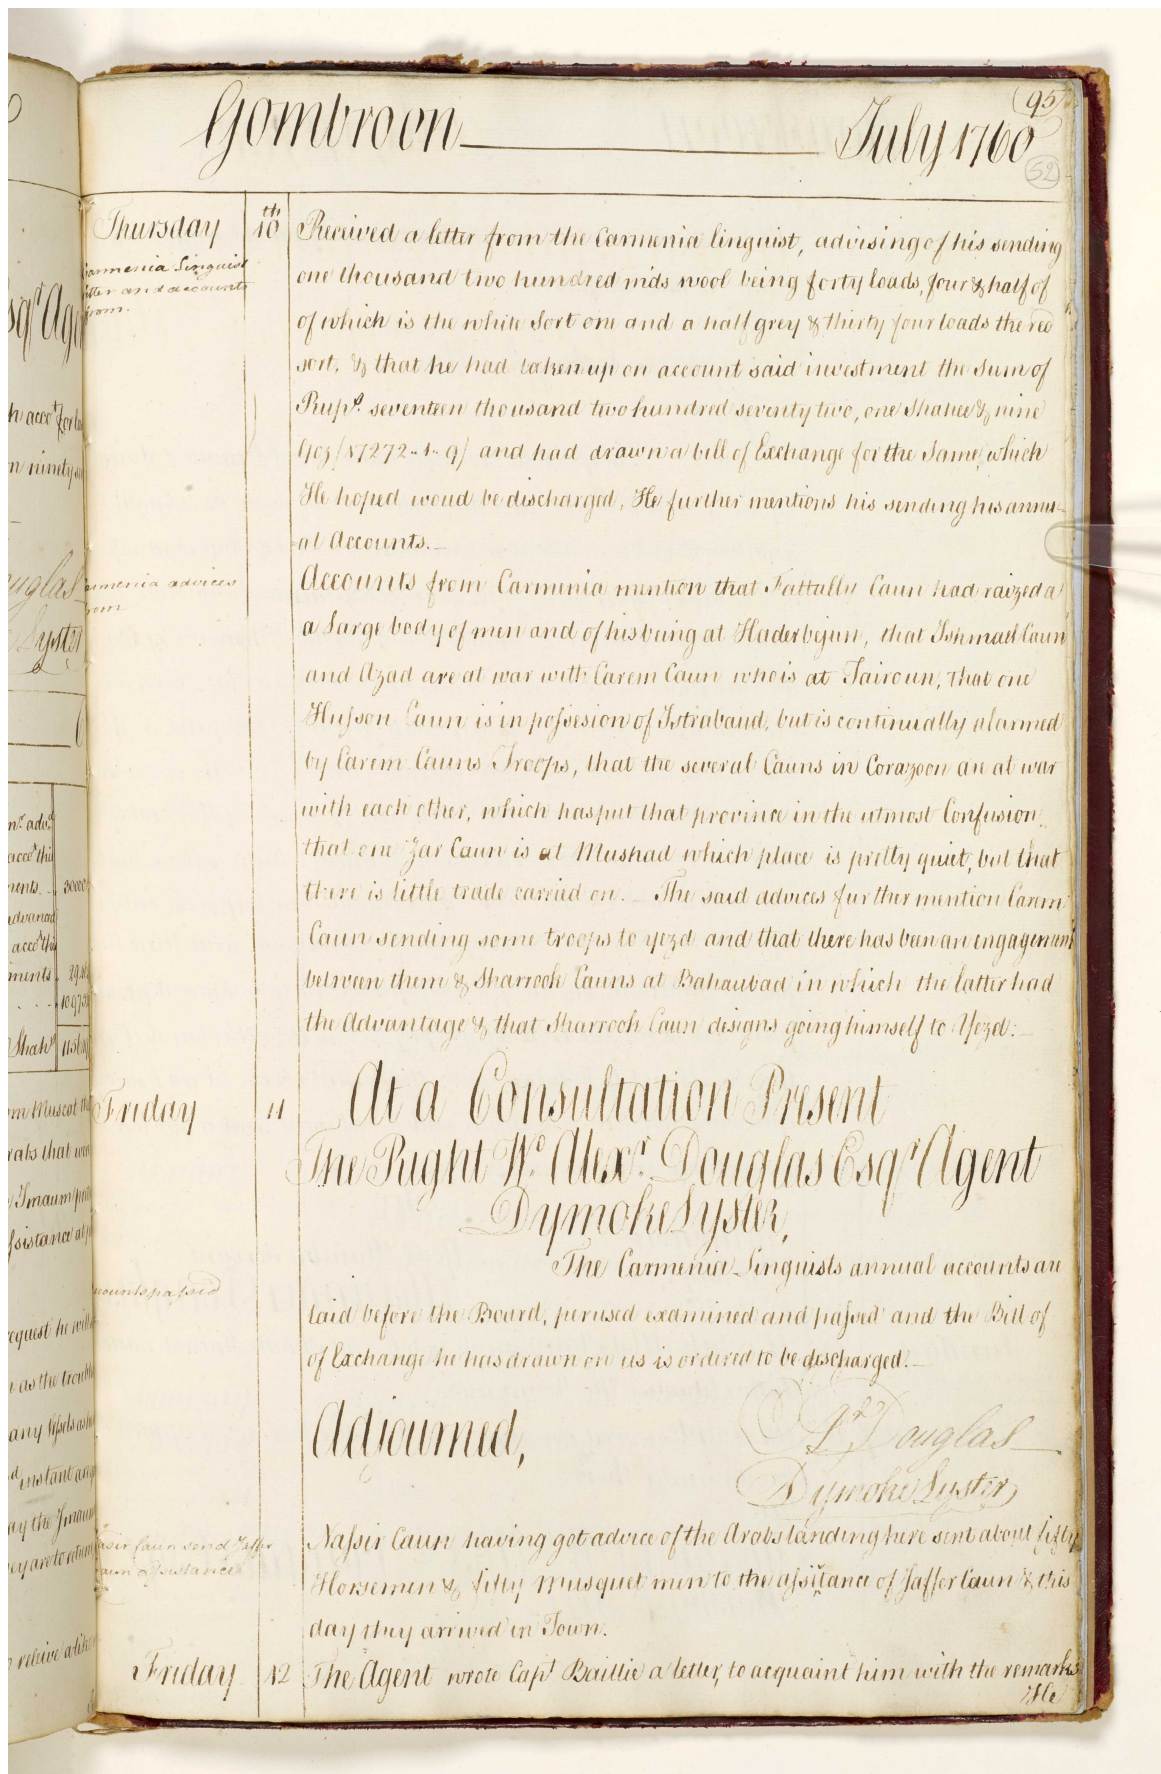 (95
Gombroon July 1760
52
Thursday 10th Received a letter from the Carmenia linguist, advising of his sending
Carmenia Linguist
letter and accounts
from.
one thousand two hundred mds wool being forty loads, four & half of
of which is the white Sort one and a half grey & thirty four loads the red
sort, & that he had taken up on account said investment the Sum of
Rups. seventeen thousand two hundred seventy two, one Shahee & nine
Goz/17272-1-9/ and had drawn a bill of Exchange for the Same, which
He hoped woud be discharged, He further mentions his sending his annu-
al Accounts.
Carmenia advices
from
Accounts from Carmenia mention that Fattally Caun had raized a
a Large body of men and of his being at Haderbejun, that Ishmael Caun
and Azad are at war with Carem Caun who is at Tairoun, that one
Husson Caun is in possesion of Istrabaud, but is continually alarmed
by Carem Cauns Troops, that the several Cauns in Corazoon are at war
with each other, which has put that province in the utmost Confusion,
that one Zar Caun is at Mushad which place is pretty quiet, but that
there is little trade carried on. The said advices further mention Carem
Caun sending some troops to yezd and that there has been an engagement
between them & Sharrock Cauns at Bahaubad in which the latter had
the Advantage & that Sharrock Caun designs going himself to Yezd:
Friday 11 At a Consultation Present
The Right Wo. Alexr. Douglas Esqr Agent
Dymoke Lyster,
The Carmenia Linguists annual accounts are
counts passed
laid before the Board, perused examined and passed and the Bill of
of Exchange he has drawn on us is ordered to be discharged.
Adjourned,
Douglas
Dymoke Lyster
Nassir Caun having got advice of the Arabs landing here sent about fifty
Nasir Caun send Jaffer
Caun assistance
Horsemen & fifty Musquet men to the assistance of Jaffer Caun & this
day they arrived in Town.
Friday 12 The Agent wrote Capt Baillie a letter, to acquaint him with the remarks
He